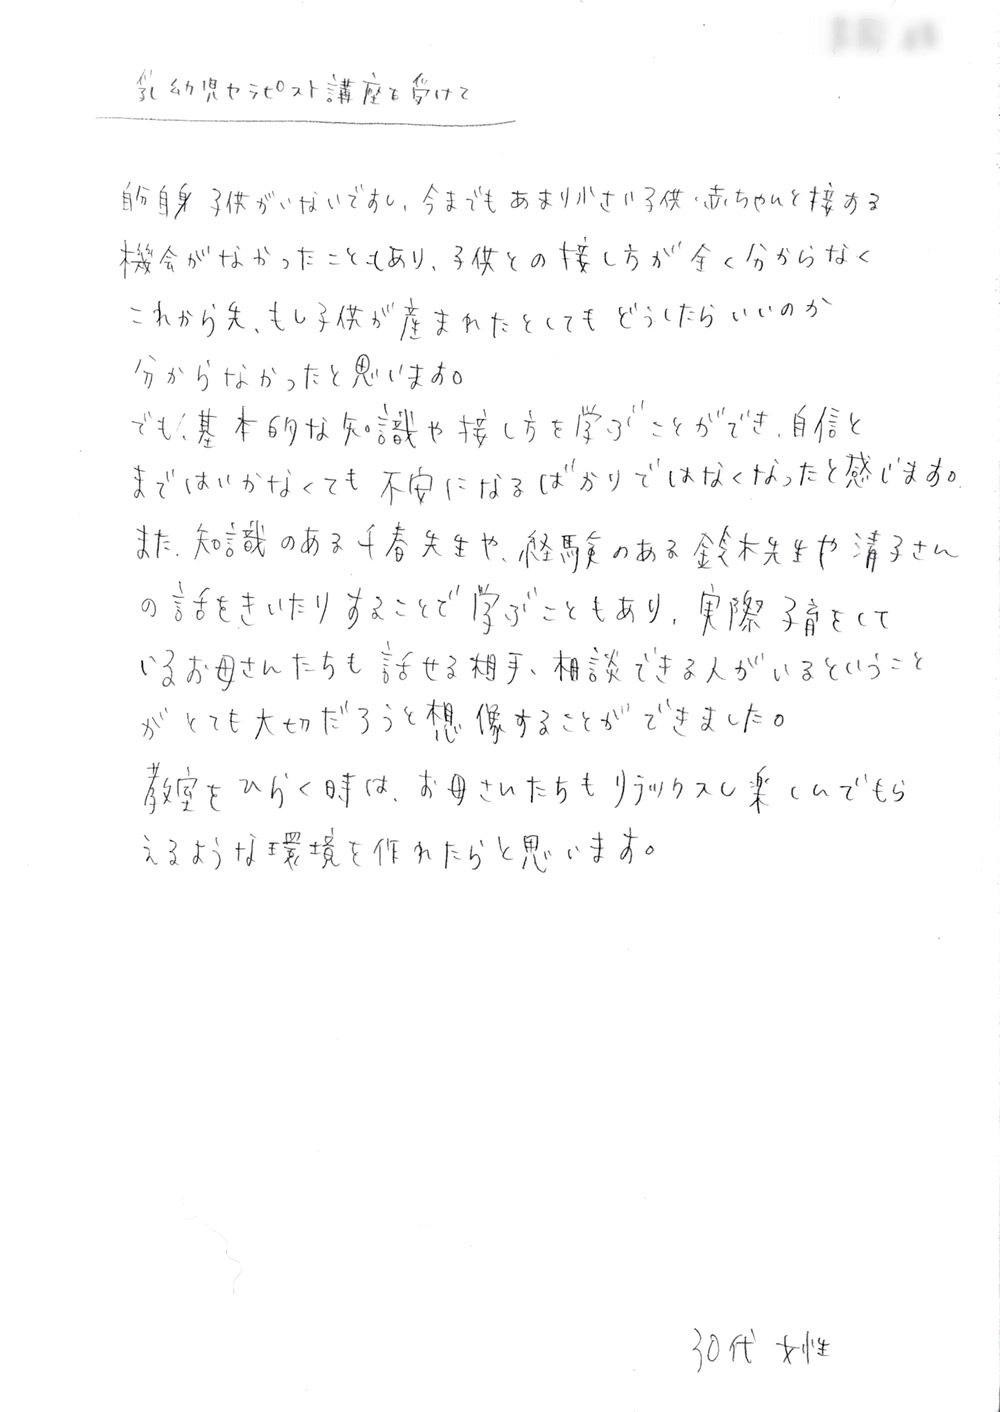 乳幼児セラピスト講座を受けて
自分自身 子供がいないですし、今までもあまり小さい子供・赤ちゃんと接する
機会がなかったこともあり、子供との接し方が全く分からなく
これから先、もし子供が産まれたとしてもどうしたらいいのか
分からなかったと思います。
でも、基本的な知識や接し方を学ぶことができ、自信と
まではいかなくても不安になるばかりではなくなったと感じます。
また、知識のある千春先生や、経験のある鈴木先生や清子さん
の話をきいたりすることで学ぶこともあり、実際子育をして
いるお母さんたちも話せる相手、相談できる人がいるということ
がとても大切だろうと想像することができました。
教室をひらく時は、お母さんたちもリラックスし楽しんでもら
えるような環境を作れたらと思います。
30代 女性